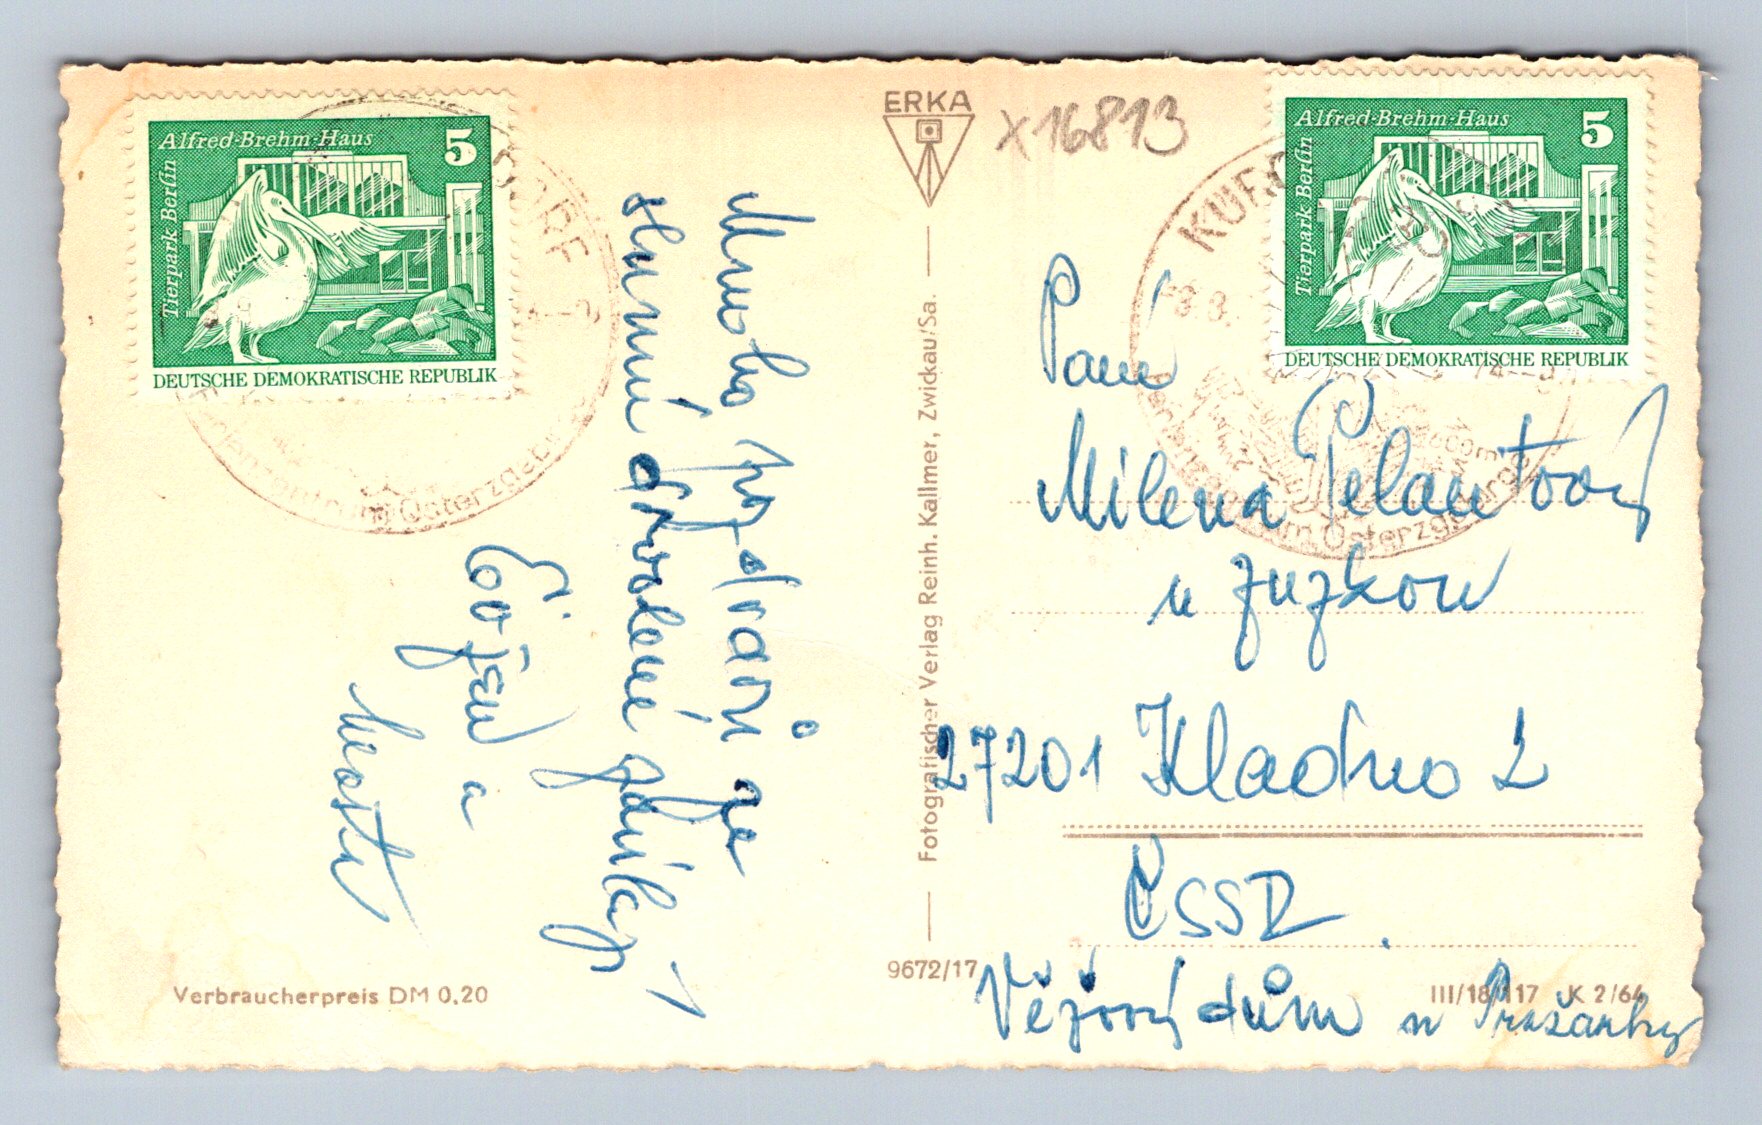 Alfred-Brehm-Haus
5
Tierpark Berlin
DEUTSCHE DEMOKRATISCHE REPUBLIK
Mnoho pozdravů ze
slunné dovolené
a
ERKA
Fotografischer Verlag Reinh. Kallmer, Zwickau/Sa.
9672/17
Verbraucherpreis DM 0,20
X16813
Alfred-Brehm-Haus
5
Tierpark Berlin
DEUTSCHE DEMOKRATISCHE REPUBLIK
KUR
Osterzgeb
Paní
Milena Pelantová
u
27201 Kladno 2
ČSSR
Věžový dům u Pražačky
III/18/117 K 2/64